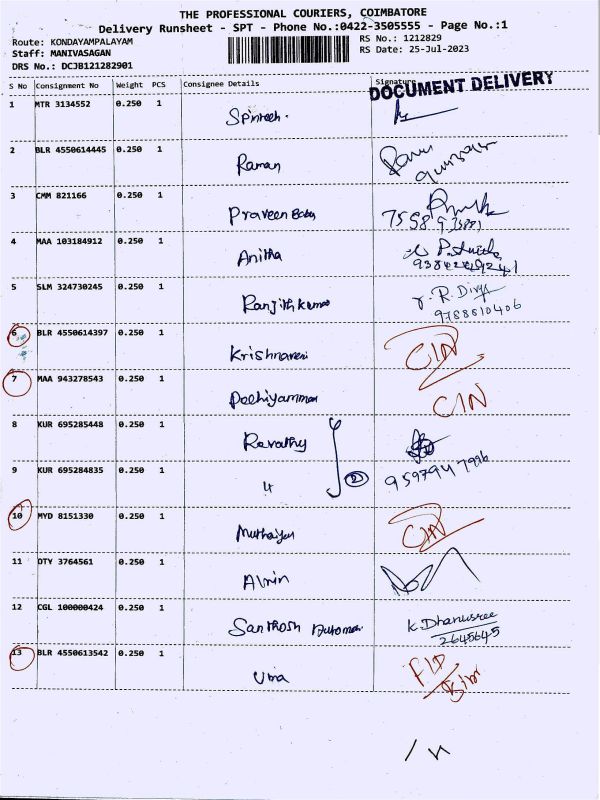 THE PROFESSIONAL COURIERS, COIMBATORE
Delivery Runsheet - SPT - Phone No.:0422-3505555 - Page No.:1
Route: KONDAYAMPALAYAM
RS No.: 1212829
Staff: MANIVASAGAN
RS Date: 25-Jul-2023
DRS No.: DCJB121282901
S No Consignment No Weight PCS Consignee Details Signature
DOCUMENT DELIVERY
1 MTR 3134552 0.250 1
2 BLR 4550614445 0.250 1 Raman
3 CMM 821166 0.250 1 Praveen Babu
4 MAA 103184912 0.250 1 Anitha
5 SLM 324730245 0.250 1 Ranjith Kumar R. Divya
9788810406
6 BLR 4550614397 0.250 1 Krishnaveni CIN
7 MAA 943278543 0.250 1 CIN
8 KUR 695285448 0.250 1 Revathy
9 KUR 695284835 0.250 1 4 2 9597947996
10 MYD 8151330 0.250 1 CIN
11 OTY 3764561 0.250 1
12 CGL 100000424 0.250 1 Santhosh K. Dhanusree
2645645
13 BLR 4550613542 0.250 1 Uma